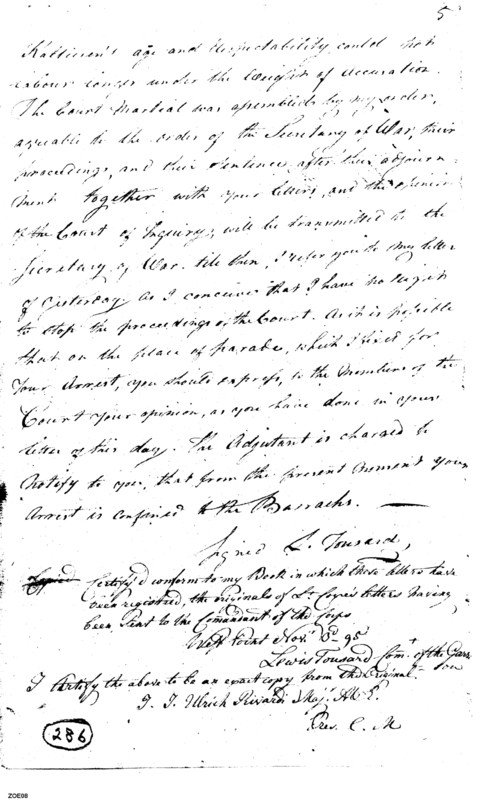 5
age and respectability could not
labour longer under the weight of accusation.
The Court Martial was assembled by my order,
agreable to the order of the Secretary of War, their
proceedings, and their sentence after their adjourn
ment together with your letters, and the opinion
of the Court of Inquiry, will be transmitted to the
Secretary of War. till then, I refer you to my letter
of yesterday as I conceive that I have no right
to stop the proceedings of the Court. As it is possible
that on the place of parade, which I fixed for
Your Arrest, you should express, to the Members of the
Court your opinion, as you have done in your
letter of this day. The Adjutant is charged to
notify to you, that from the present moment your
Arrest is confined to the Barracks.
Signed L. Tousard,
Certify'd conform to my Book in which those letters have
been registred, the originals of Lt letters having
been sent to the Comandant of the Corps
West Point Novr 95
Lewis Tousard Comt of the Garri
son
I Certify the above to be an exact copy from the Original.
J. J. Ulrich Rivardi Majr A & E.
Pres. C. M
286
ZOE08